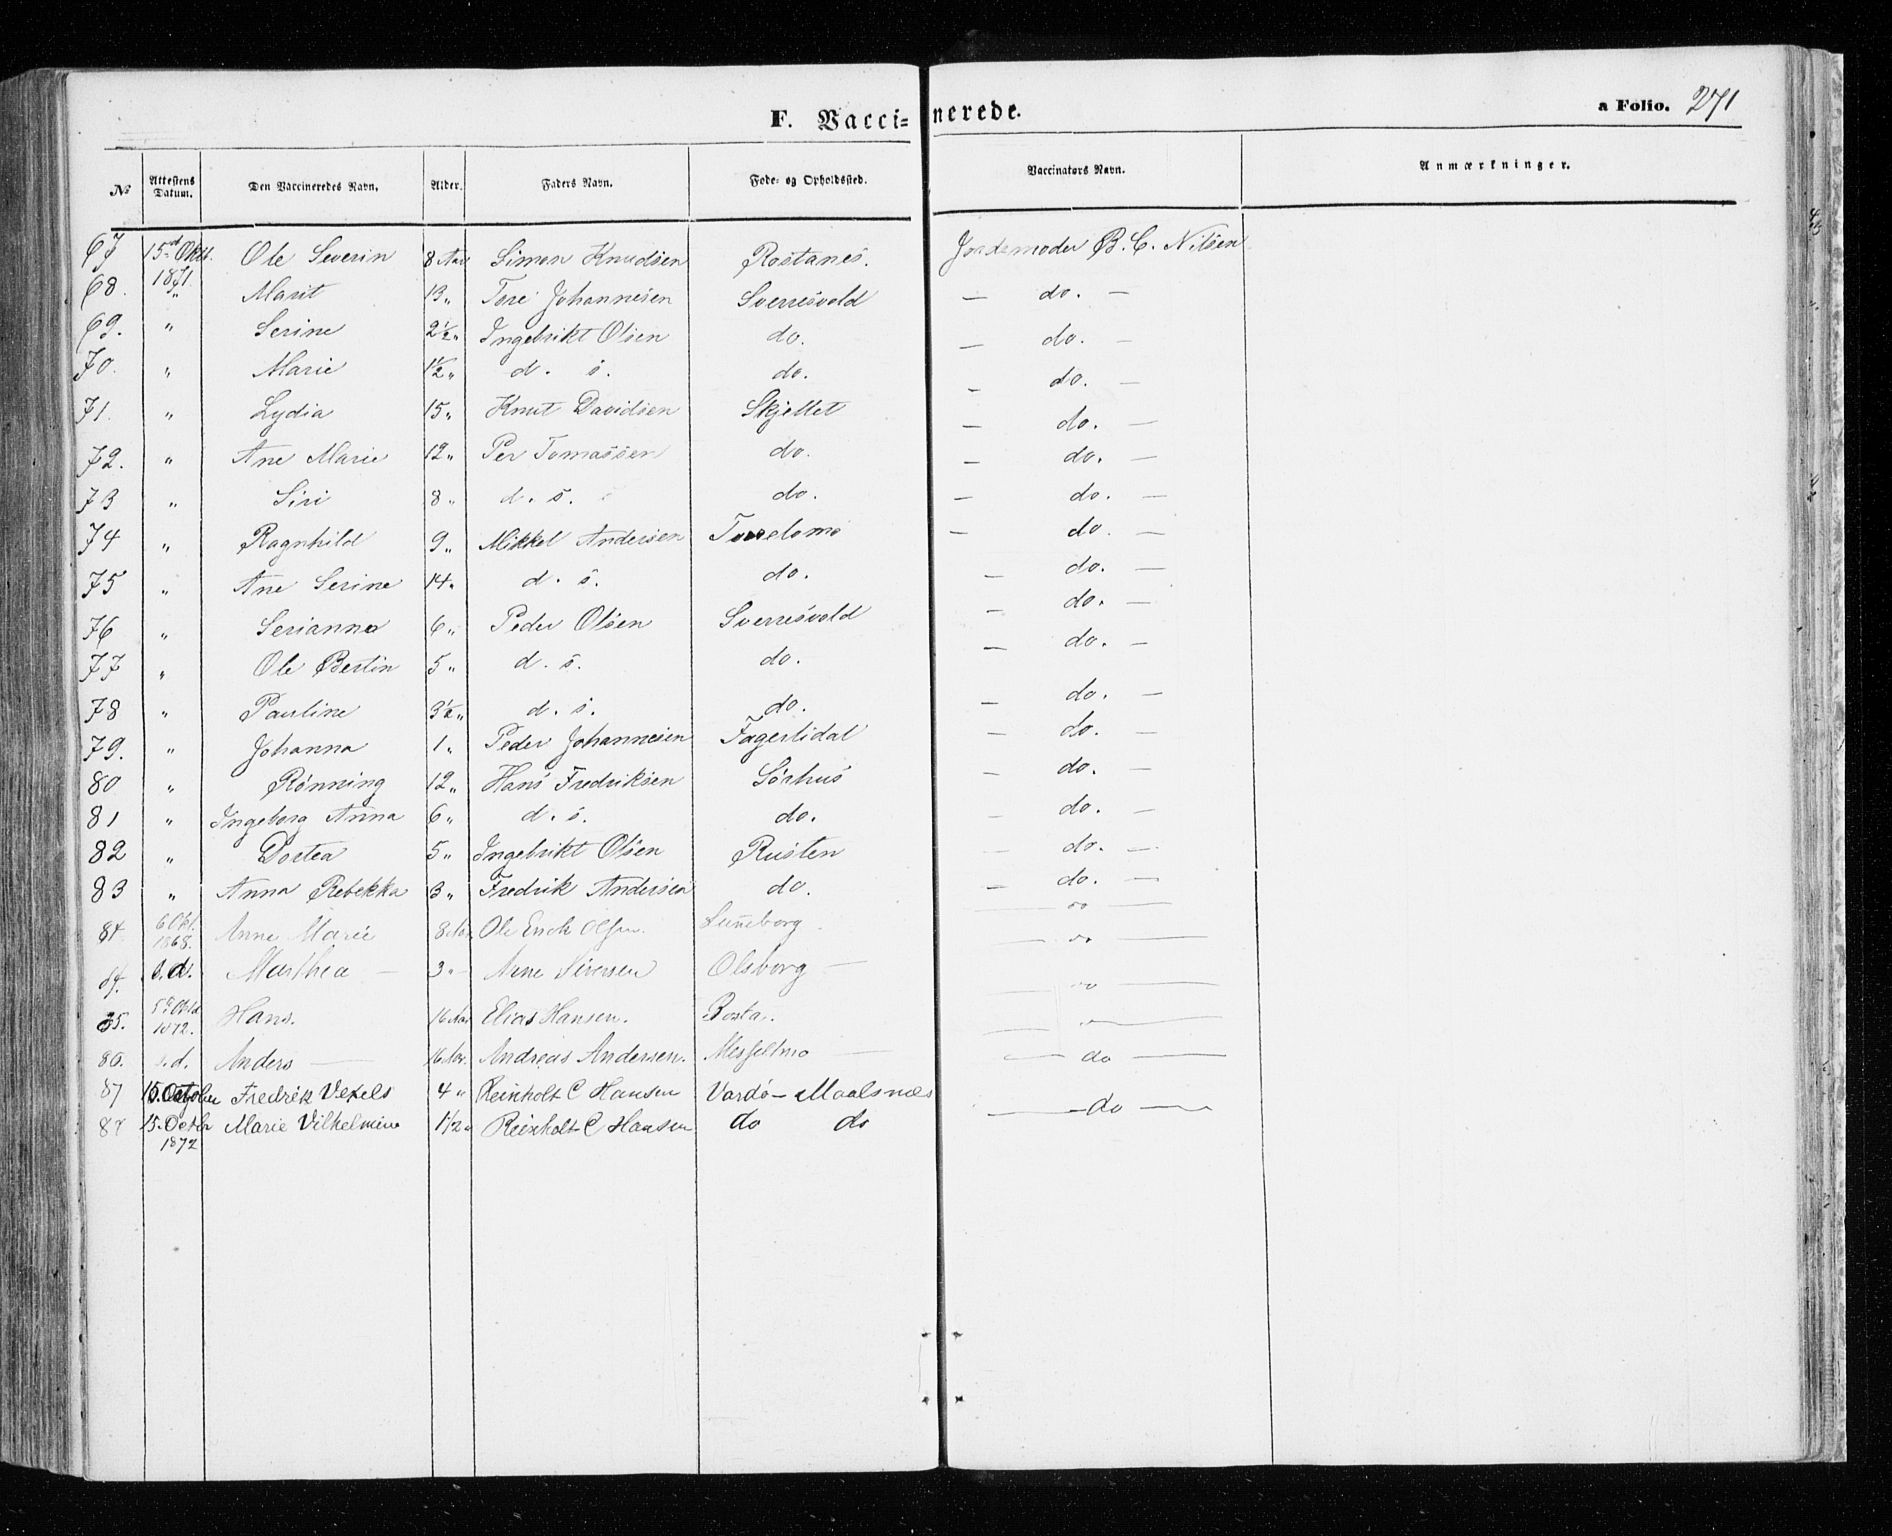 F. Vaccinerede.
a Folio. 271
No Attestens Datum. Den Vaccineredes Navn. Alder. Faders Navn. Føde- og Opholdssted. Vaccinators Navn. Anmærkninger.
67 15de Oktb. 1871. Ole Severin 8 Aar Simon Knudsen Rostanes. Jordemoder B. C. Nilsen
68. " Marit 13 " Tore Johannesen Sverresvold — do. —
69. " Serine 2½ " Ingebrikt Olsen do. — do. —
70. " Marie 1½ " d. s. do. — do. —
71. " Lydia 15 " Knut Davidsen Skjellet — do. —
72. " Ane Marie 12 " Per Tomassen do. — do. —
73 " Siri 8 " d. s. do. — do. —
74 " Ragnhild 9 " Mikkel Andersen — do. —
75 " Ane Serine 14 " d. s. do. — do. —
76 " Serianna 6 " Peder Olsen Sverresvold — do. —
77 " Ole Bertin 5 " d. s. do. — do. —
78 " Pauline 3½ " d. s. do. — do. —
79. " Johanna 1 " Peder Johannesen Fagerlidal — do. —
80 " Rønning 12 " Hans Fredriksen Sørhus — do. —
81 " Ingeborg Anna 6 " d. s. do. — do. —
82 " Dortea 5 " Ingebrikt Olsen Rusten — do. —
83 " Anna Rebekka 3 " Fredrik Andersen do. — do. —
84. 6 Okt. 1868. Anne Marie 8 Aar Ole Erick Olsen. Luneborg — do —
84. s. d. Marthea — 3 " Arne Siversen Olsborg — — do —
85. 5te Oktb 1872. Hans. 16 Aar Elias Hansen. Rosta. — do —
86. s. d. Anders — 16 Aar. Andreas Andersen. Messeltmo — — do —
87 15. October Fredrik Vexels 4 " Reinholt C Hansen Vardø — Maalsnes — do —
87 15. Octbr 1872 Marie Vilhelmine 1 1/2 " Reinholt C Hansen do do